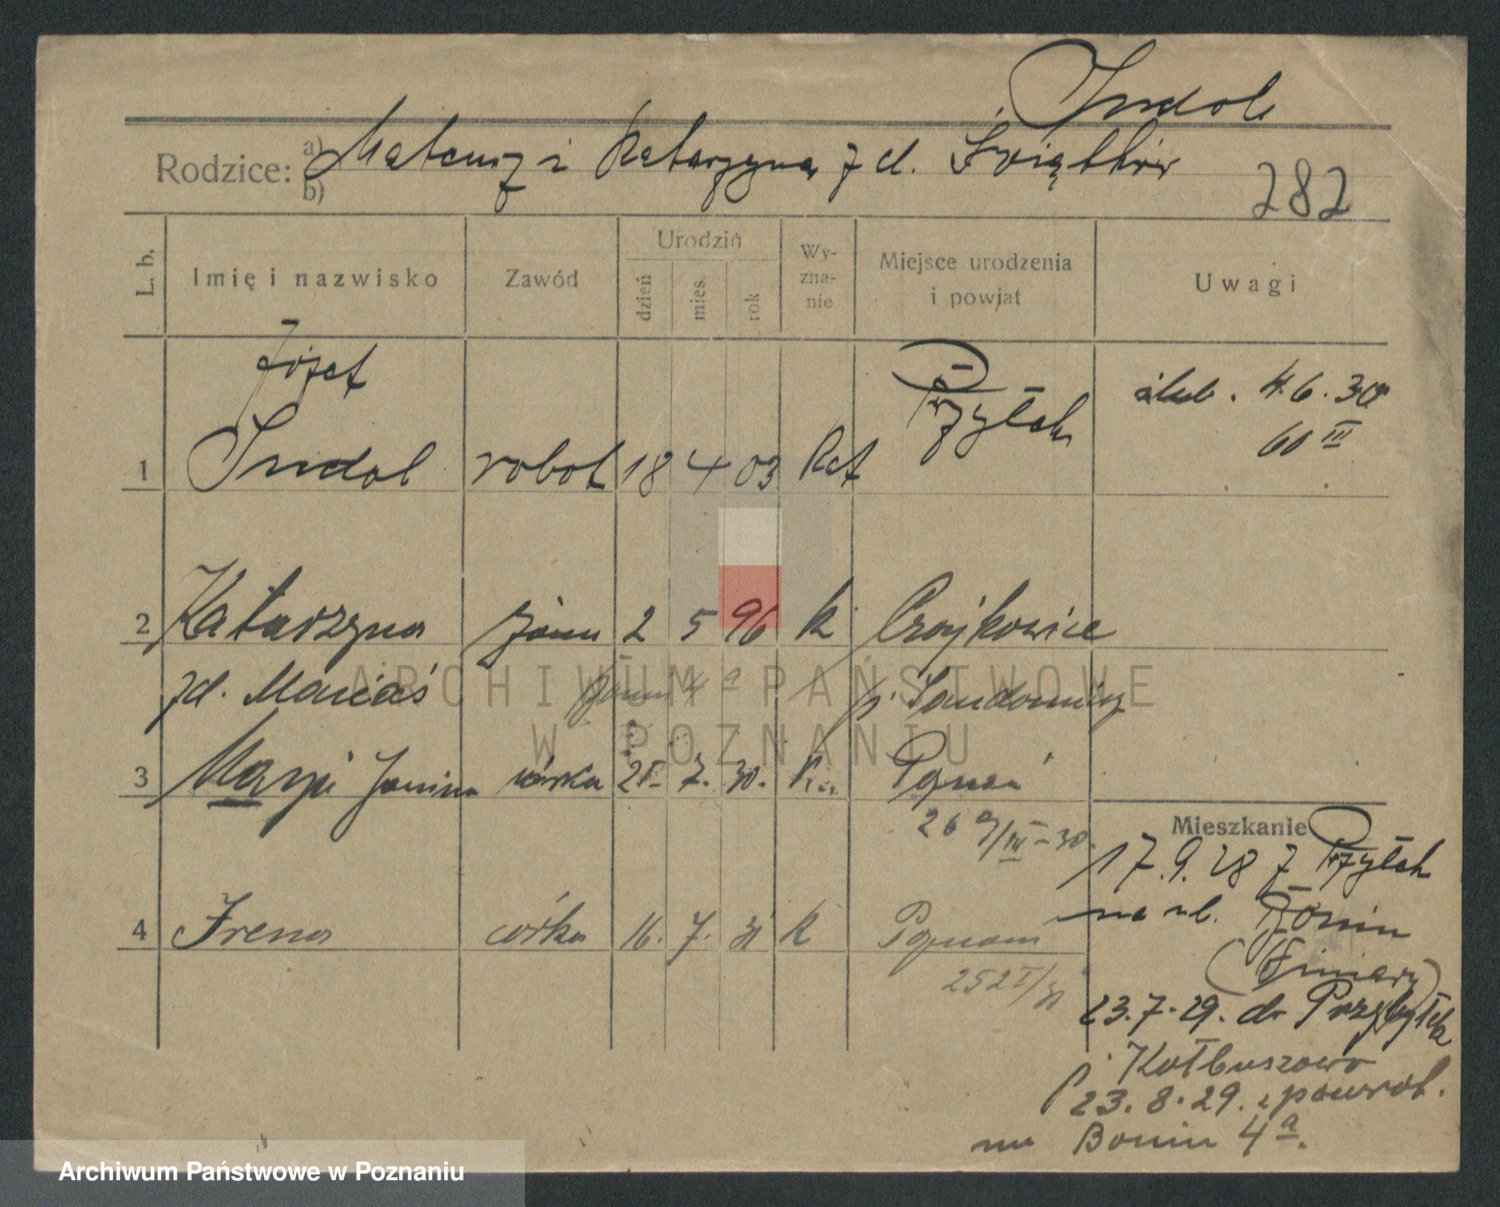 Indol
Rodzice: a) Mateusz i Katarzyna z d. Świątków
b)
282
L. b. Imię i nazwisko Zawód Urodziń dzień mies. rok Wy-zna-nie Miejsce urodzenia i powiat Uwagi
Józef
1 Indol robot 18 4 03 Kat Przyłęk ślub. 4.6.30
60 III
2 Katarzyna żona 2 5 96 k Czajkowice
zd. Maciaś p. Sandomierz
3 Maryja Janina córka 25. 7. 30. K. Poznań
26 /III-30.
4 Irena córka 16. 7. 31 k Poznań
252 I/31
Mieszkanie
17.9.28 z Przyłęk
na ul. Bonin
(Winiary)
23.7.29. do Przyłęk
p. Kolbuszowa
23.8.29. z powrot.
na Bonin 4a.
ARCHIWUM PAŃSTWOWE
W POZNANIU
Archiwum Państwowe w Poznaniu